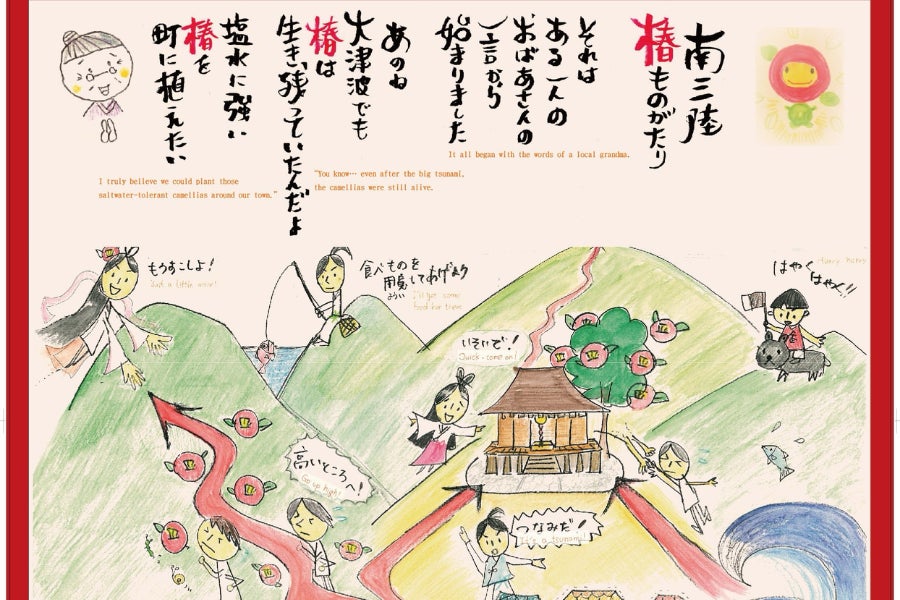 南三陸
椿ものがたり
それは
ある一人の
おばあさんの
一言から
始まりました
It all began with the words of a local grandma.
あのね
大津波でも
椿は
生き残っていたんだよ
"You know… even after the big tsunami,
the camellias were still alive.
塩水に強い
椿を
町に植えたい
I truly believe we could plant those
saltwater-tolerant camellias around our town."
もうすこしよ!
Just a little more!
食べものを
用意してあげよう
ようい
I'll get some
food for them
はやく
はやく!!
Hurry, hurry
いそいで!
Quick, come on!
高いところへ!
Go up high!
つなみだ!
It's a tsunami!